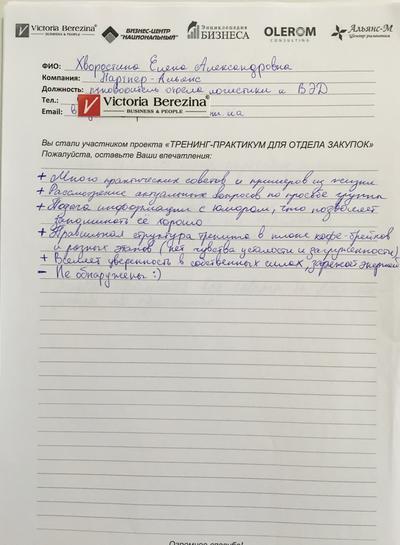 Victoria Berezina®
BUSINESS & PEOPLE
БИЗНЕС-ЦЕНТР
"НАЦИОНАЛЬНЫЙ"
Энциклопедия
БИЗНЕСА
OLEROM
CONSULTING
Альянс-М
Центр развития
ФИО: Хворостина Елена Александровна
Компания: Партнер-Альянс
Должность: руководитель отдела логистики и ВЭД
Тел.:
Victoria Berezina®
BUSINESS & PEOPLE
Email:
Вы стали участником проекта «ТРЕНИНГ-ПРАКТИКУМ ДЛЯ ОТДЕЛА ЗАКУПОК»
Пожалуйста, оставьте Ваши впечатления:
+ Много практических советов и примеров из жизни
+ Рассмотрение актуальных вопросов по просьбе группы
+ Подача информации с юмором, что позволяет
запоминать её хорошо
+ Правильная структура тренинга в плане кофе-брейков
и разных этапов (нет чувства усталости и загруженности)
+ Вселяет уверенность в собственных силах, заряжает энергией
- Не обнаружены :)
Огромное спасибо!